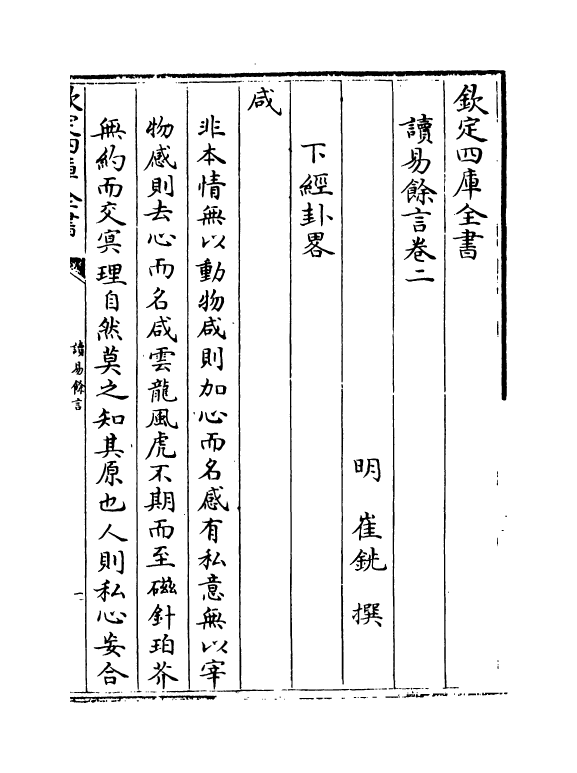 欽定四庫全書
讀易餘言卷二
明 崔銑 撰
下經卦畧
咸
非本情無以動物咸則加心而名感有私意無以宰
物感則去心而名咸雲龍風虎不期而至磁針珀芥
無約而交冥理自然莫之知其原也人則私心妄合
欽定四庫全書
讀易餘言
一